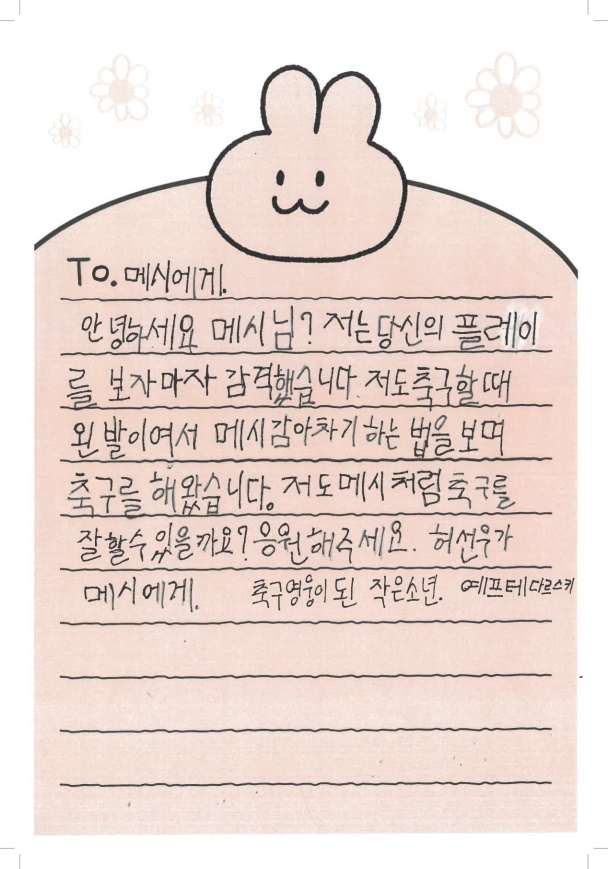 To. 메시에게.
안녕하세요 메시님? 저는 당신의 플레이
를 보자마자 감격했습니다. 저도 축구할 때
왼발이여서 메시 감아차기 하는 법을 보며
축구를 해왔습니다. 저도 메시처럼 축구를
잘할 수 있을까요? 응원해주세요. 허선우가
메시에게. 축구영웅이 된 작은소년. 예프테 다르스키